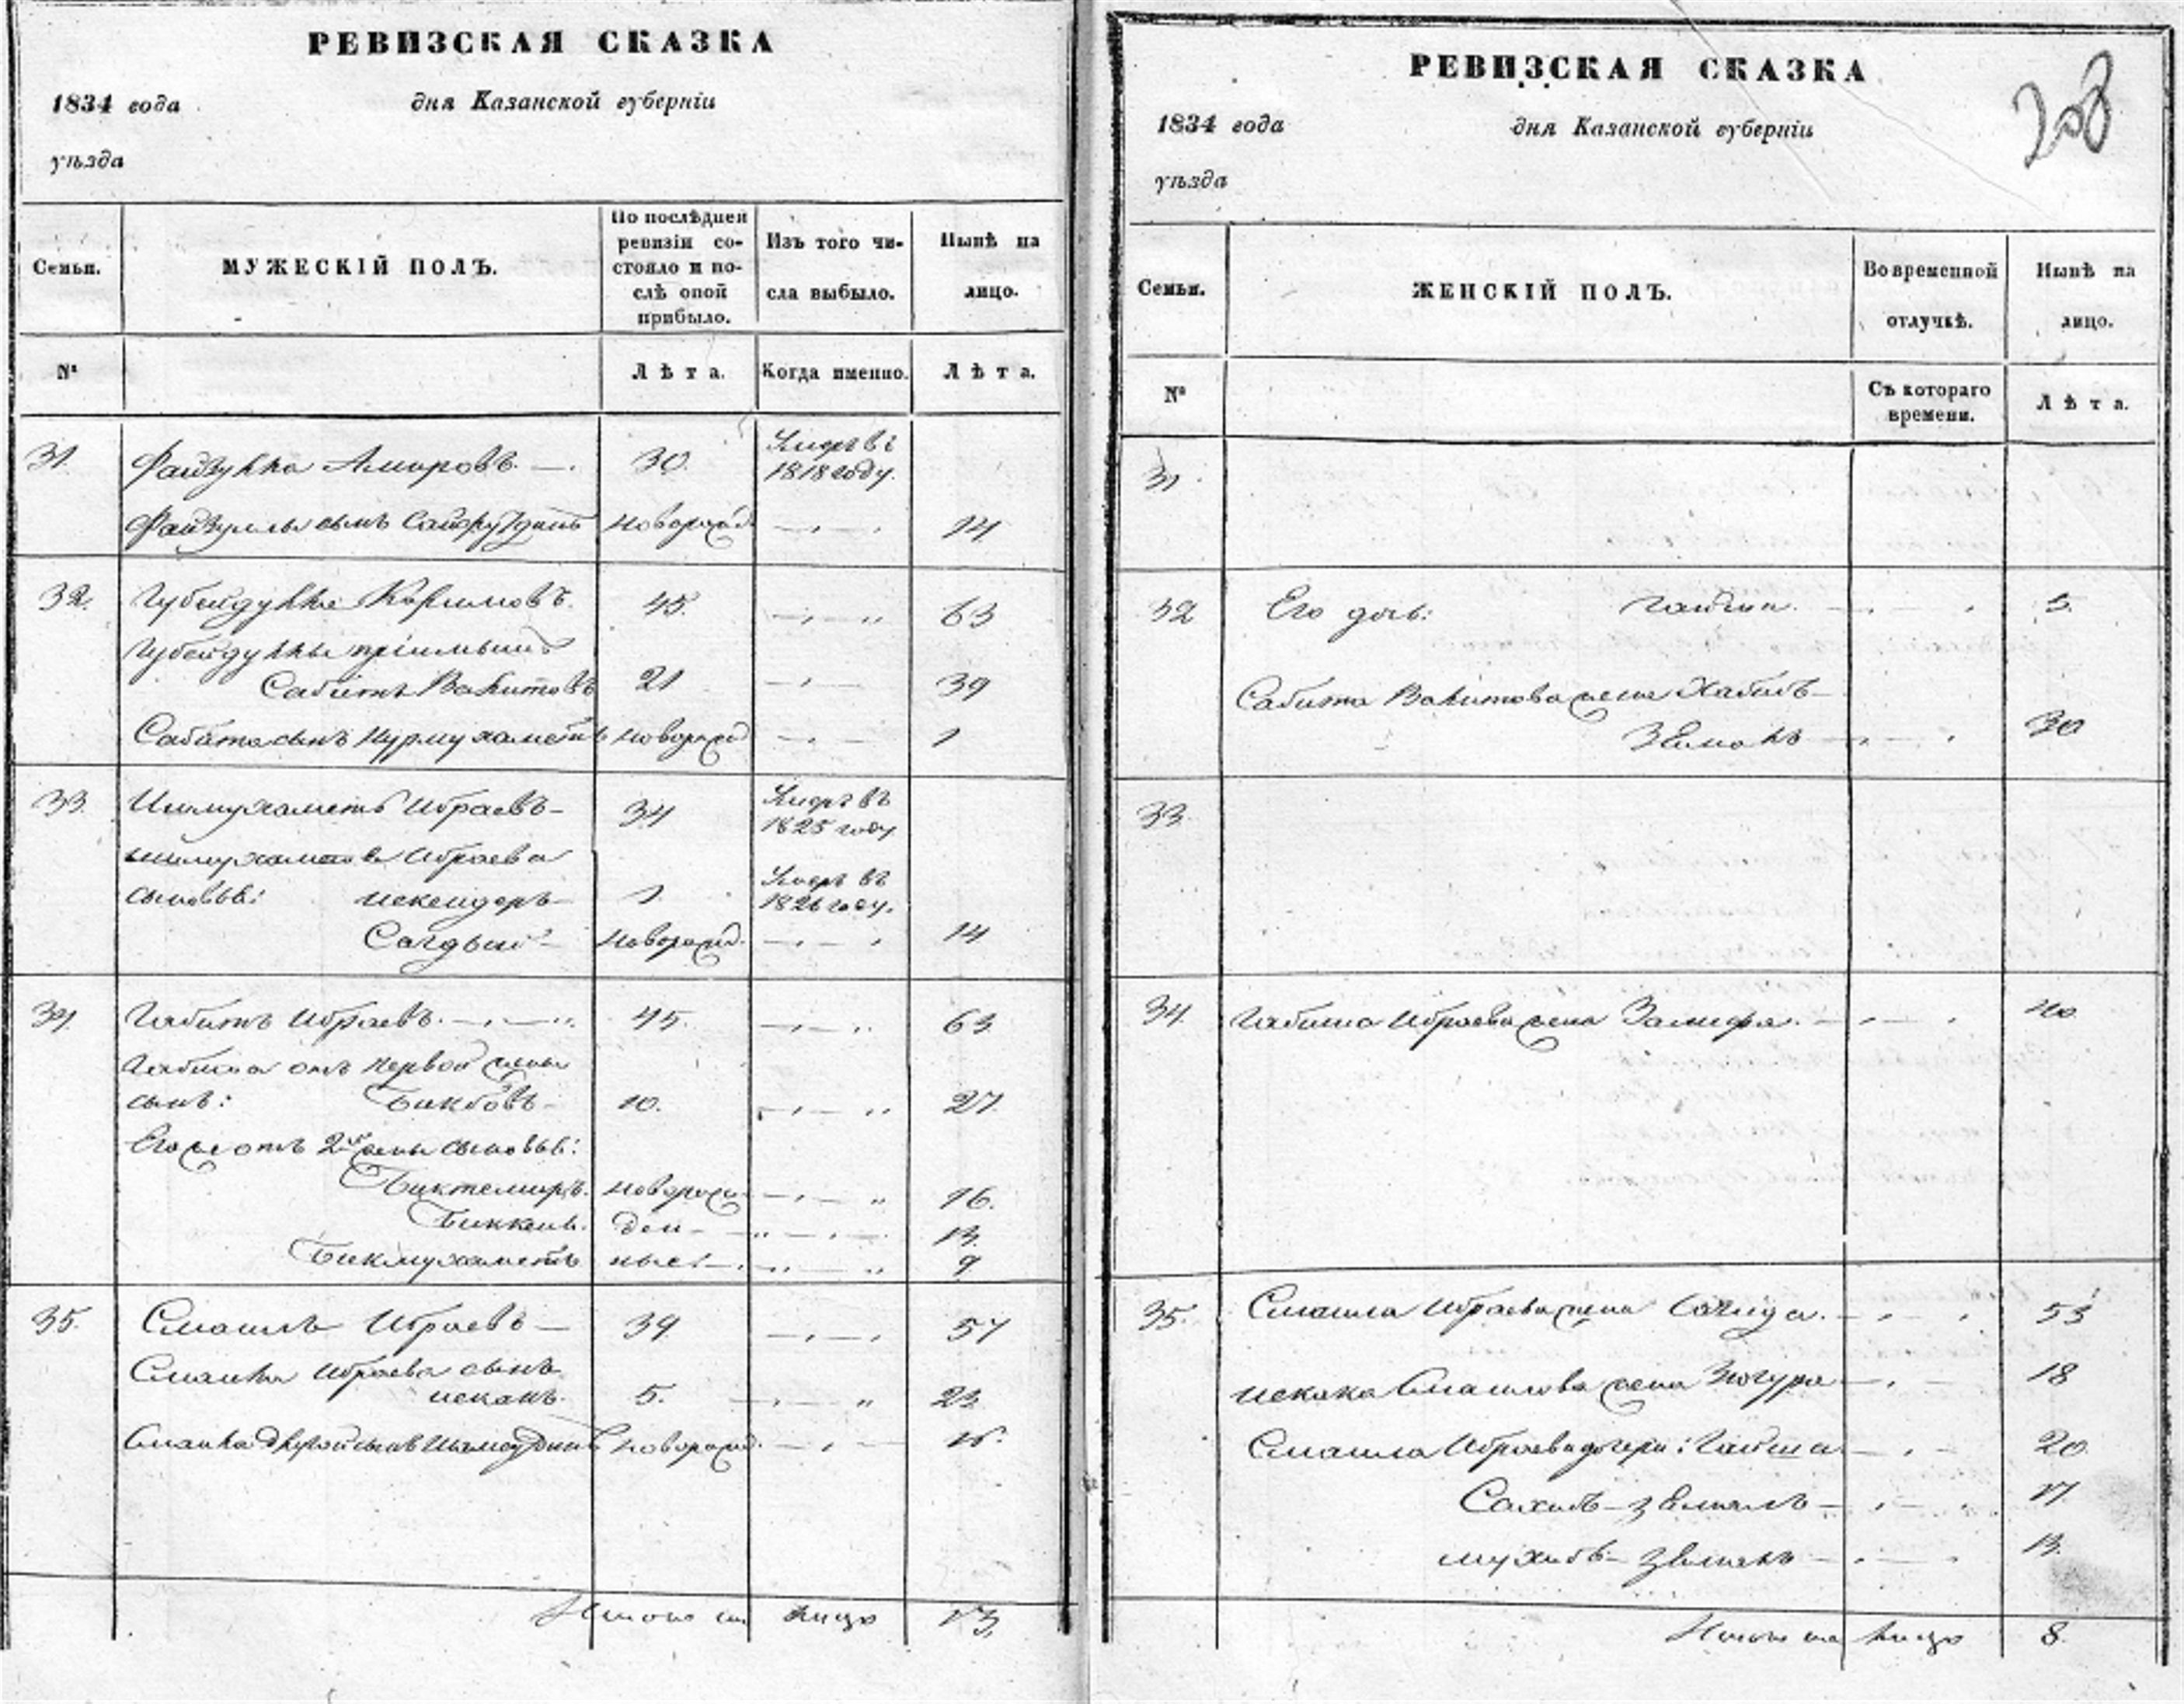 РЕВИЗСКАЯ СКАЗКА
1834 года дня Казанской губерніи
уѣзда
Семьи. МУЖЕСКІЙ ПОЛЪ. По послѣдней ревизіи состояло и послѣ оной прибыло. Изъ того числа выбыло. Нынѣ на лицо.
№ Лѣта. Когда именно. Лѣта.
31. Файзулла Амировъ 30. Умеръ въ 1818 году.
Файзуллы сынъ Сайфутдинъ новорожд. 14
32. Губейдулла Каримовъ. 45. 63
Губейдуллы пріимышъ
Сабитъ Вахитовъ 21 39
Сабита сынъ Нурмухаметъ новорожд 1
33. Ишмухаметъ Ибраевъ 34 Умеръ въ 1825 году
Ишмухамета Ибраева
сыновья: Искендеръ 1. Умеръ въ 1826 году.
Сагдый новорожд. 14
34. Габитъ Ибраевъ. 45. 63.
Габита отъ первой жены
сынъ: Бикбовъ 10. 27.
Его же отъ 2й жены сыновья:
Биктемиръ. новорож 16.
Биккень. ден- 13.
Бикмухаметъ ные 9
35. Смаилъ Ибраевъ 39 57
Смаила Ибраева сынъ
Искакъ. 5. 23.
Смаила другой сынъ новорожд.
Итого на лицо 13.
РЕВИЗСКАЯ СКАЗКА
208
1834 года дня Казанской губерніи
уѣзда
Семьи. ЖЕНСКІЙ ПОЛЪ. Во временной отлучкѣ. Нынѣ на лицо.
№ Съ котораго времени. Лѣта.
31.
32 Его дочь: 5.
Сабита Вахитова жена Хабибъ-
Земалъ 30
33.
34. Габита Ибраева жена 40
35. Смаила Ибраева жена Сагида. 53
Искака Смаилова жена Зюгура 18
Смаила Ибраева дочери: Гайша 20.
Сахибъ-Земалъ 17.
Мухибъ-Земалъ 13.
Итого на лицо 8.